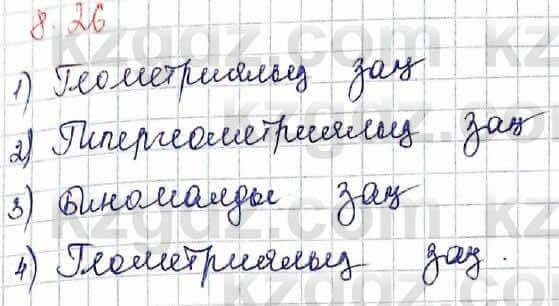 8.26
1) Геометриялық заң
2) Гипергеометриялық заң
3) Биномалды заң
4) Геометриялық заң.